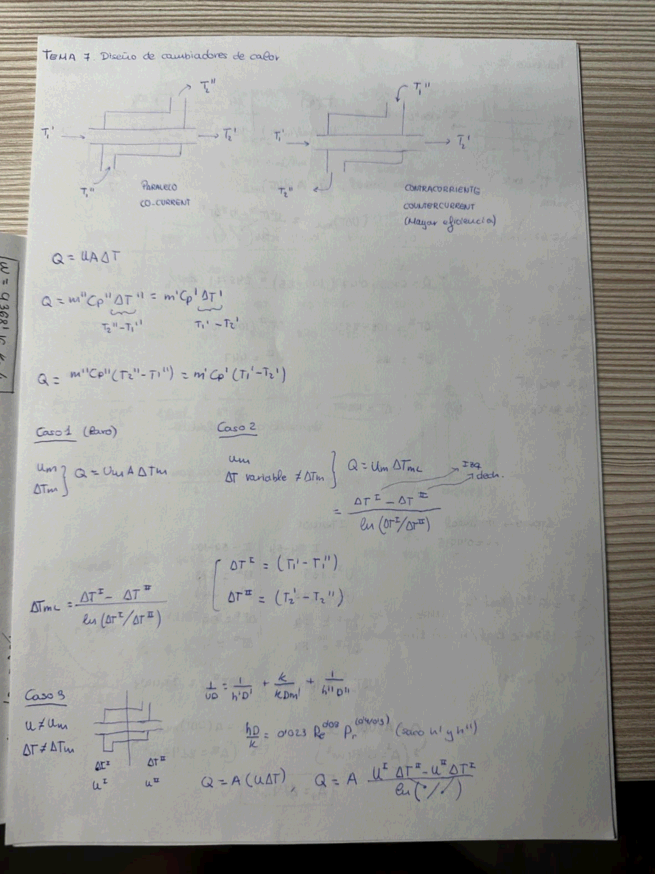 TEMA 7 Diseño de cambiadores de calor
T2''
T1''
T1'
T2'
T1'
T2'
T1''
T2''
PARALELO
CO-CURRENT
CONTRACORRIENTE
COUNTERCURRENT
(Mayor eficiencia)
Q = UAΔT
Q = m''Cp''ΔT'' = m'Cp'ΔT'
T2''-T1''
T1'-T2'
Q = m''Cp''(T2''-T1'') = m'Cp'(T1'-T2')
Caso 1 (Raro)
Caso 2
Um
ΔTm } Q = Um A ΔTm
Um
ΔT variable ≠ ΔTm } Q = Um ΔTmL
Izq
dech.
= (ΔT^I - ΔT^II) / ln(ΔT^I/ΔT^II)
ΔTmL = (ΔT^I - ΔT^II) / ln(ΔT^I/ΔT^II)
ΔT^I = (T1'-T1'')
ΔT^II = (T2'-T2'')
Caso 3
U ≠ Um
ΔT ≠ ΔTm
ΔT^I ΔT^II
U^I U^II
1/UD = 1/h'D' + k/KDm' + 1/h''D''
hD/k = 0'023 Re^0'8 Pr^(0'4/0'3) (saco h' y h'')
Q = A(UΔT), Q = A (U^I ΔT^II - U^II ΔT^I) / ln( / )